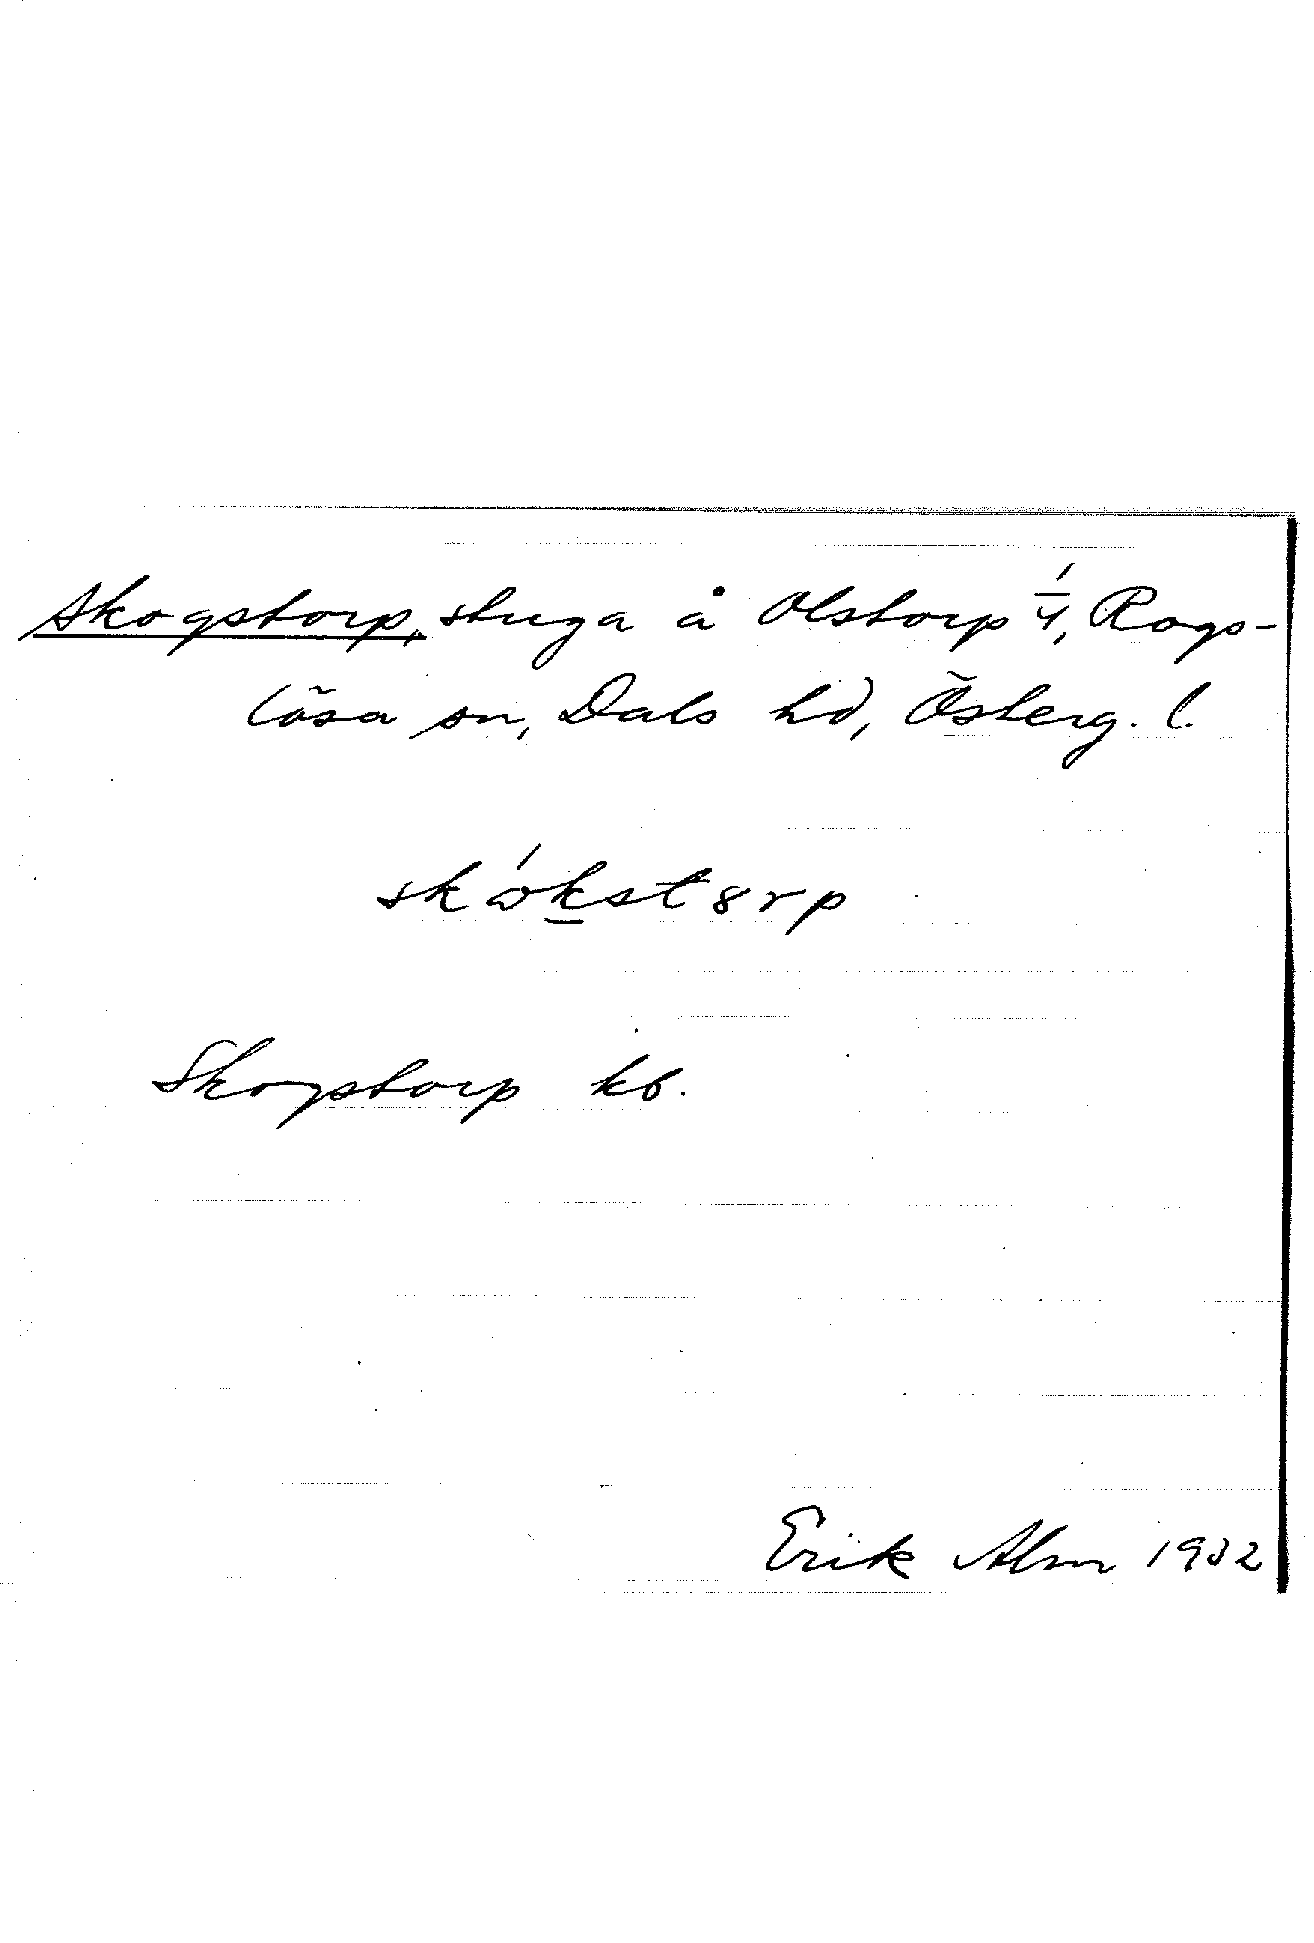 Skogstorp, stuga å Olstorp 1/4, Rogs-
lösa sn, Dals hd, Österg. l.
skókstȣrp
Skogstorp kb.
Erik Alm 1932